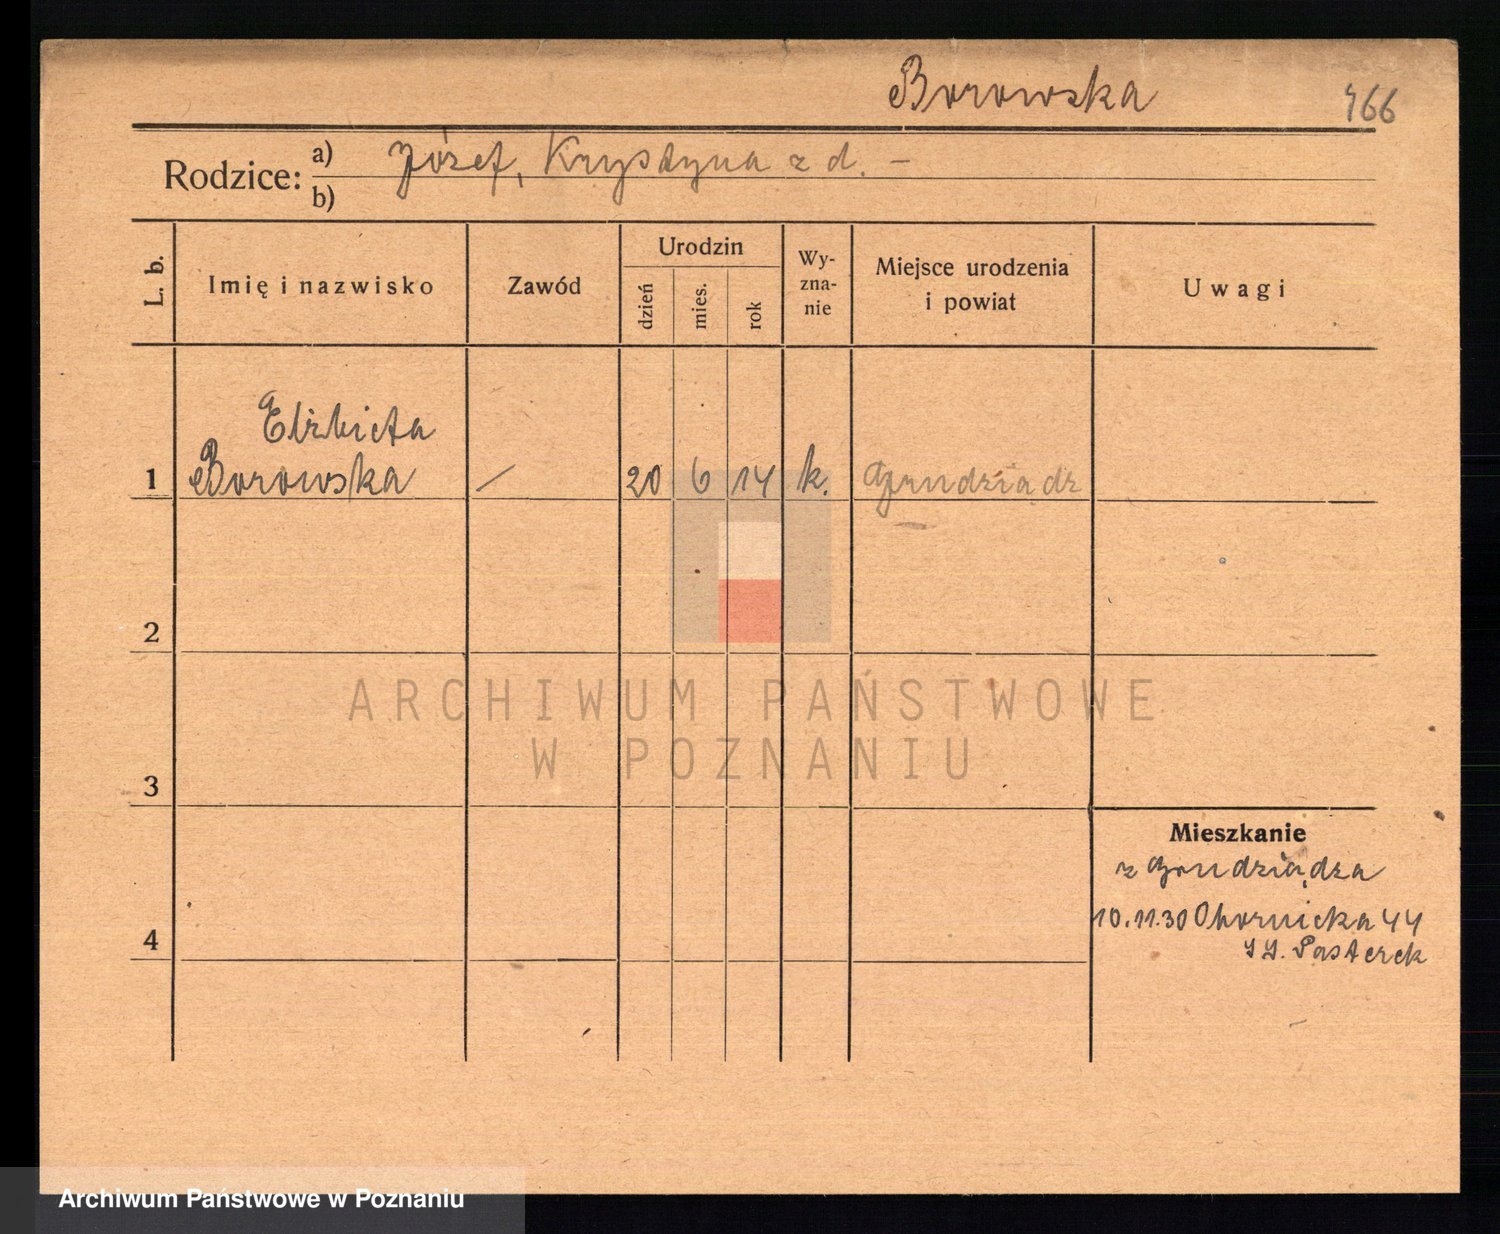 Borowska 466
Rodzice: a) Józef, Krystyna z d. –
b)
L. b.
Imię i nazwisko
Zawód
Urodzin
dzień
mies.
rok
Wy-
zna-
nie
Miejsce urodzenia
i powiat
Uwagi
Elżbieta
1 Borowska / 20 6 14 k. Grudziądz
2
3
4
Mieszkanie
z Grudziądza
10.11.30 Obornicka 44
Pasterek
ARCHIWUM PAŃSTWOWE
W POZNANIU
Archiwum Państwowe w Poznaniu